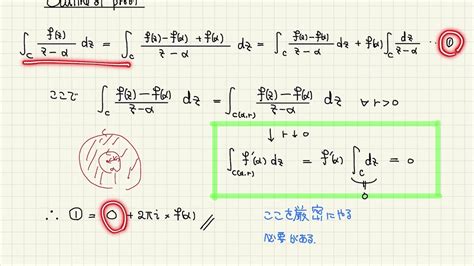 Outline of proof
∫_C f(z)/(z-α) dz = ∫_C (f(z)-f(α)+f(α))/(z-α) dz = ∫_C (f(z)-f(α))/(z-α) dz + f(α) ∫_C dz/(z-α) … ①
ここで ∫_C (f(z)-f(α))/(z-α) dz = ∫_{C(α,r)} (f(z)-f(α))/(z-α) dz ∀r>0
↓ r↓0
∫_{C(α,r)} f'(α) dz = f'(α) ∫_C dz = 0
‖
0
∴ ① = 0 + 2πi × f(α) //
ここを厳密にやる
必要がある.